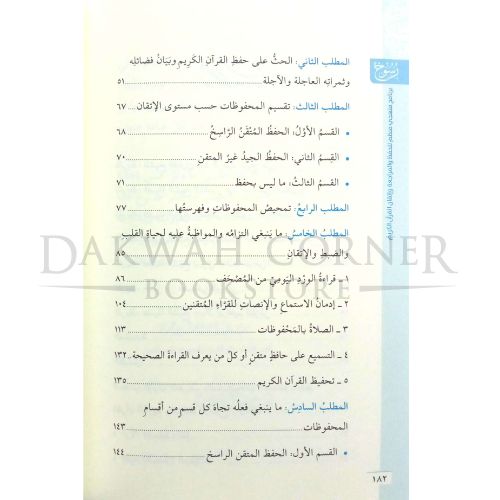 المطلب الثاني: الحثُّ على حفظِ القرآنِ الكَرِيمِ وبَيَانُ فضائلِه
وثمراتِه العاجلة والآجلة ٥١
المطلب الثالث: تقسيم المحفوظات حسب مستوى الإتقان ٦٧
• القسمُ الأوَّلُ: الحفظُ المُتْقَنُ الرَّاسِخُ ٦٨
• القِسمُ الثاني: الحفظُ الجيدُ غيرُ المتقنِ ٧٠
• القسم الثالثُ: ما ليس بِحفظ ٧١
المطلب الرابعُ: تمحيصُ المحفوظاتِ وفهرستُها ٧٧
المطلبُ الخامسُ: ما يَنبغي التزامُه والمواظبةُ عليه لحياةِ القلب
والضبطِ والإتقانِ ٨٥
١ - قراءةُ الوِرْدِ اليَوميِّ من المُصْحَفِ ٨٦
٢ - إدمانُ الاستماعِ والإنصاتِ للقُرَّاءِ المُتقنين ١٠٤
٣ - الصلاةُ بالمَحْفُوظات ١١٣
٤ - التسميع على حافظٍ متقنٍ أو كلّ من يعرف القراءةَ الصحيحة ١٣٢
٥ - تحفيظ القرآن الكريم ١٣٥
المطلبُ السادِسُ: ما ينبغي فعلُه تجاهَ كل قسمٍ من أقسامِ
المحفوظات ١٤٣
• القسم الأول: الحفظ المتقن الراسخ ١٤٤
١٨٢
رُسُوخ
برنامج منهجي منظم للحفظ والمراجعة وإتقان القرآن الكريم
DAKWAH CORNER
BOOKSTORE